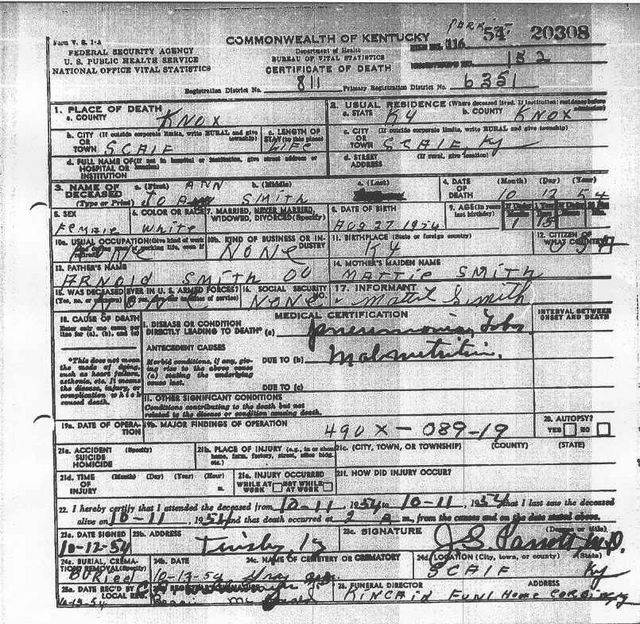 COMMONWEALTH OF KENTUCKY 54 20308
Form V. S. 1-A
FEDERAL SECURITY AGENCY
U. S. PUBLIC HEALTH SERVICE
NATIONAL OFFICE VITAL STATISTICS
Department of Health
BUREAU OF VITAL STATISTICS
CERTIFICATE OF DEATH
116
152
Registration District No. 811 Primary Registration District No. 6351
1. PLACE OF DEATH
a. COUNTY KNOX
2. USUAL RESIDENCE (Where deceased lived. If institution: residence before
a. STATE KY b. COUNTY KNOX
b. CITY (If outside corporate limits, write RURAL and give township) OR TOWN SCALF
c. LENGTH OF STAY (in this place) LIFE
c. CITY (If outside corporate limits, write RURAL and give township) OR TOWN SCALF, Ky
d. FULL NAME OF (If not in hospital or institution, give street address or location) HOSPITAL OR INSTITUTION
d. STREET ADDRESS (If rural, give location)
3. NAME OF DECEASED (Type or Print) a. (First) JO ANN b. (Middle) SMITH c. (Last)
4. DATE OF DEATH (Month) (Day) (Year) 10 12 54
5. SEX Female
6. COLOR OR RACE White
7. MARRIED, NEVER MARRIED, WIDOWED, DIVORCED (Specify)
8. DATE OF BIRTH AUG 27 1954
9. AGE (In years last birthday) 1 15
10a. USUAL OCCUPATION (Give kind of work NONE
10b. KIND OF BUSINESS OR INDUSTRY NONE
11. BIRTHPLACE (State or foreign country) KY
12. CITIZEN OF WHAT COUNTRY?
13. FATHER'S NAME ARNOLD SMITH
14. MOTHER'S MAIDEN NAME MATTIE SMITH
15. WAS DECEASED EVER IN U. S. ARMED FORCES?
16. SOCIAL SECURITY NO. NONE
17. INFORMANT Smith
18. CAUSE OF DEATH
Enter only one cause per line for (a), (b), and (c)
MEDICAL CERTIFICATION
INTERVAL BETWEEN ONSET AND DEATH
I. DISEASE OR CONDITION DIRECTLY LEADING TO DEATH* (a) pneumonia,
ANTECEDENT CAUSES
*This does not mean the mode of dying, such as heart failure, asthenia, etc. It means the disease, injury, or complication which caused death.
Morbid conditions, if any, giving rise to the above cause (a) stating the underlying cause last.
DUE TO (b)
DUE TO (c)
II. OTHER SIGNIFICANT CONDITIONS
Conditions contributing to the death but not related to the disease or condition causing death.
19a. DATE OF OPERATION
19b. MAJOR FINDINGS OF OPERATION
490X - 089-19
20. AUTOPSY? YES NO
21a. ACCIDENT SUICIDE HOMICIDE (Specify)
21b. PLACE OF INJURY (e.g., in or about home, farm, factory, street, office bldg., etc.)
21c. (CITY, TOWN, OR TOWNSHIP) (COUNTY) (STATE)
21d. TIME OF INJURY (Month) (Day) (Year) (Hour) m.
21e. INJURY OCCURRED WHILE AT WORK NOT WHILE AT WORK
21f. HOW DID INJURY OCCUR?
22. I hereby certify that I attended the deceased from 10-11, 1954 to 10-11, 1954 that I last saw the deceased
alive on 10-11, 1954 and that death occurred at 2 a m., from the causes and on the date stated above.
23a. DATE SIGNED 10-12-54
23b. ADDRESS
23c. SIGNATURE (Degree or title) M.D.
24a. BURIAL, CREMATION, REMOVAL (Specify) BURIED
24b. DATE 10-13-54
24c. NAME OF CEMETERY OR CREMATORY
24d. LOCATION (City, town, or county) (State) SCALF Ky
25a. DATE REC'D BY LOCAL REG.
25. FUNERAL DIRECTOR ADDRESS
KINCAID FUNL HOME